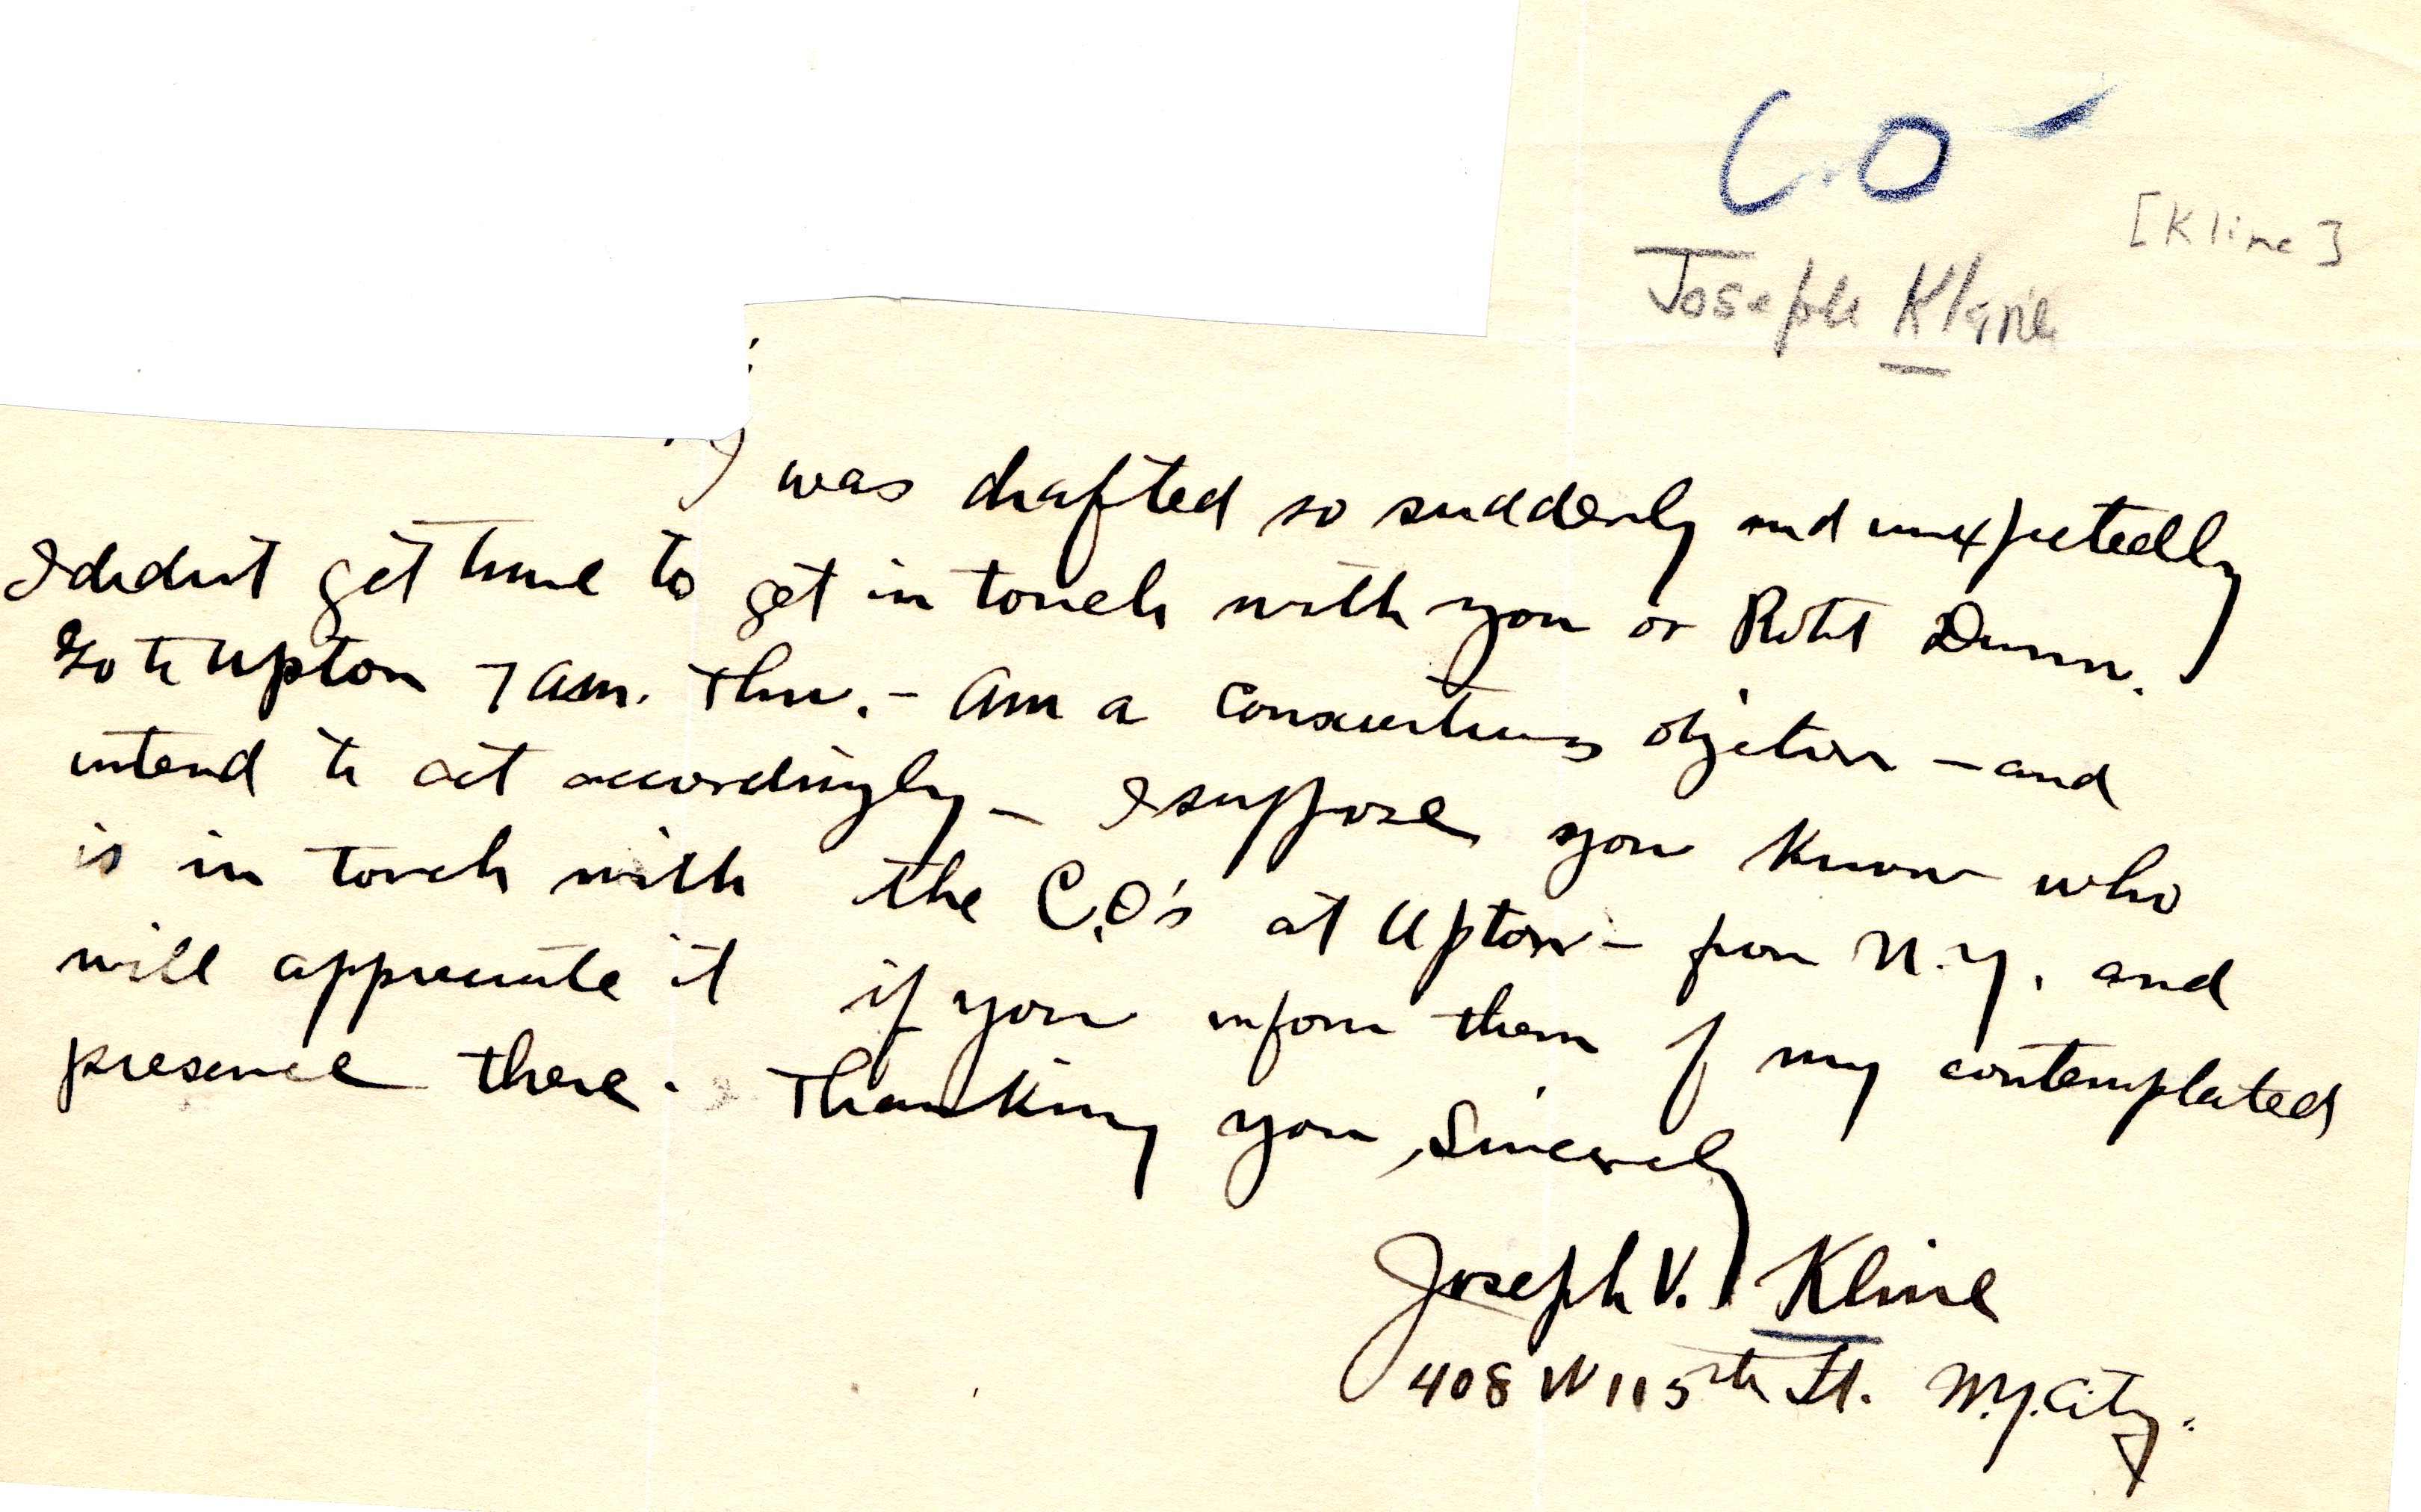 CO
[Kline]
Joseph Kline
I was drafted so suddenly and unexpectedly
I didnt get time to get in touch with you or Robt Dunn.
Go to Upton 7 am. Thu. - Am a conscientious objector - and
intend to act accordingly - I suppose you know who
is in touch with the C.O's at Upton - from N.Y. and
will appreciate it if you inform them of my contemplated
presence there. Thanking you, Sincerely
Joseph V. Kline
408 W 115th St. N.Y. City.